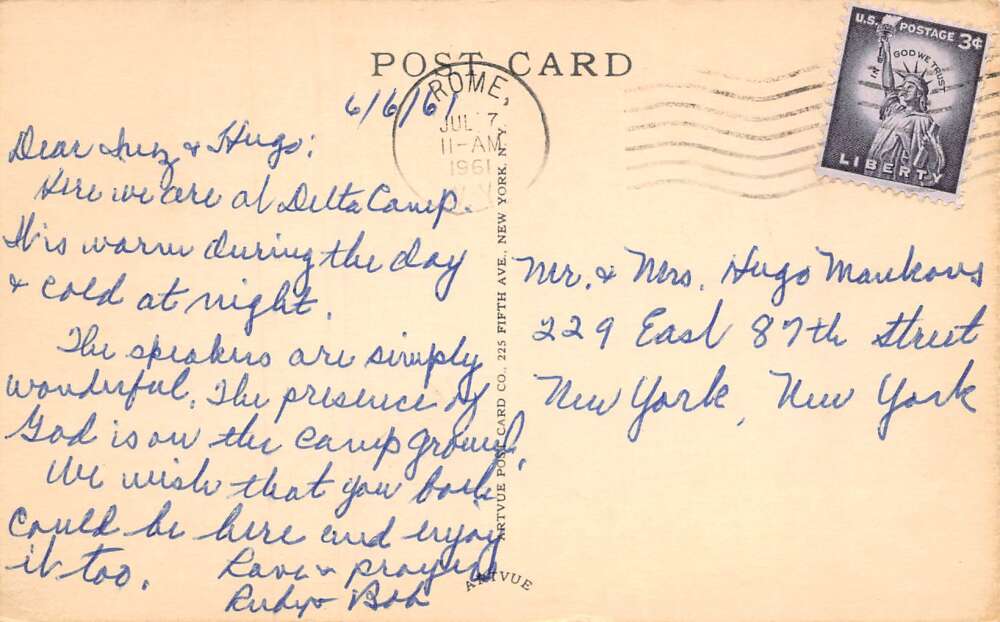 POST CARD
6/6/61
Dear Inez & Hugo:
Here we are at Delta Camp.
It is warm during the day
& cold at night.
The speakers are simply
wonderful. The presence of
God is on the camp ground.
We wish that you both
could be here and enjoy
it too.
Love & prayers
Ruby & Bob
ROME,
JUL 7
11-AM
1961
N.Y.
ARTVUE POST CARD CO., 225 FIFTH AVE., NEW YORK, N. Y.
ARTVUE
U.S. POSTAGE 3¢
IN GOD WE TRUST
LIBERTY
Mr. & Mrs. Hugo
229 East 87th Street
New York, New York